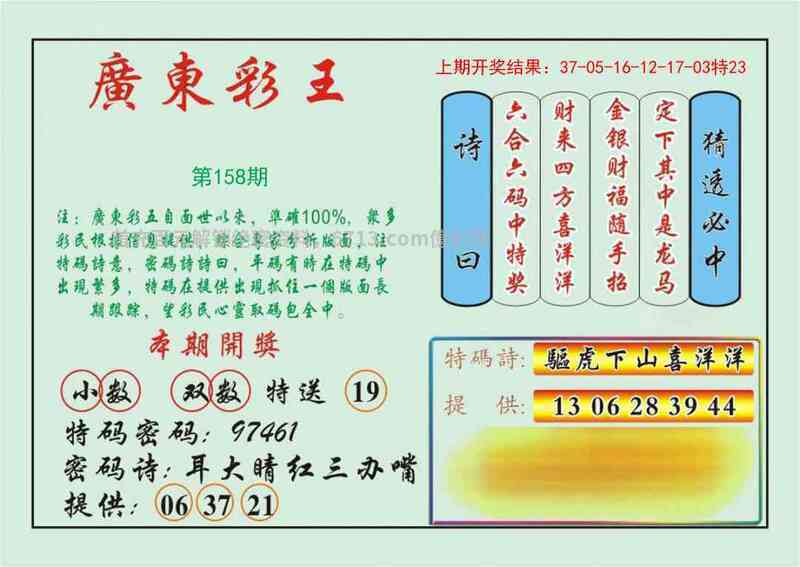 廣東彩王
第158期
注：廣東彩五自面世以来，準確100%，衆多
彩民根據
特碼詩意，密碼詩詩曰，平碼有時在特碼中
出現繁多，特碼在提供出現抓住一個版面長
期跟踪，望彩民心靈取碼包全中。
本期開獎
小数 双数 特送 19
特码密码：97461
密码诗：耳大睛红三办嘴
提供：06 37 21
上期开奖结果：37-05-16-12-17-03特23
诗曰
六合六码中特奖
财来四方喜洋洋
金银财福随手招
定下其中是龙马
猜透必中
特碼詩：驅虎下山喜洋洋
提供：13 06 28 39 44